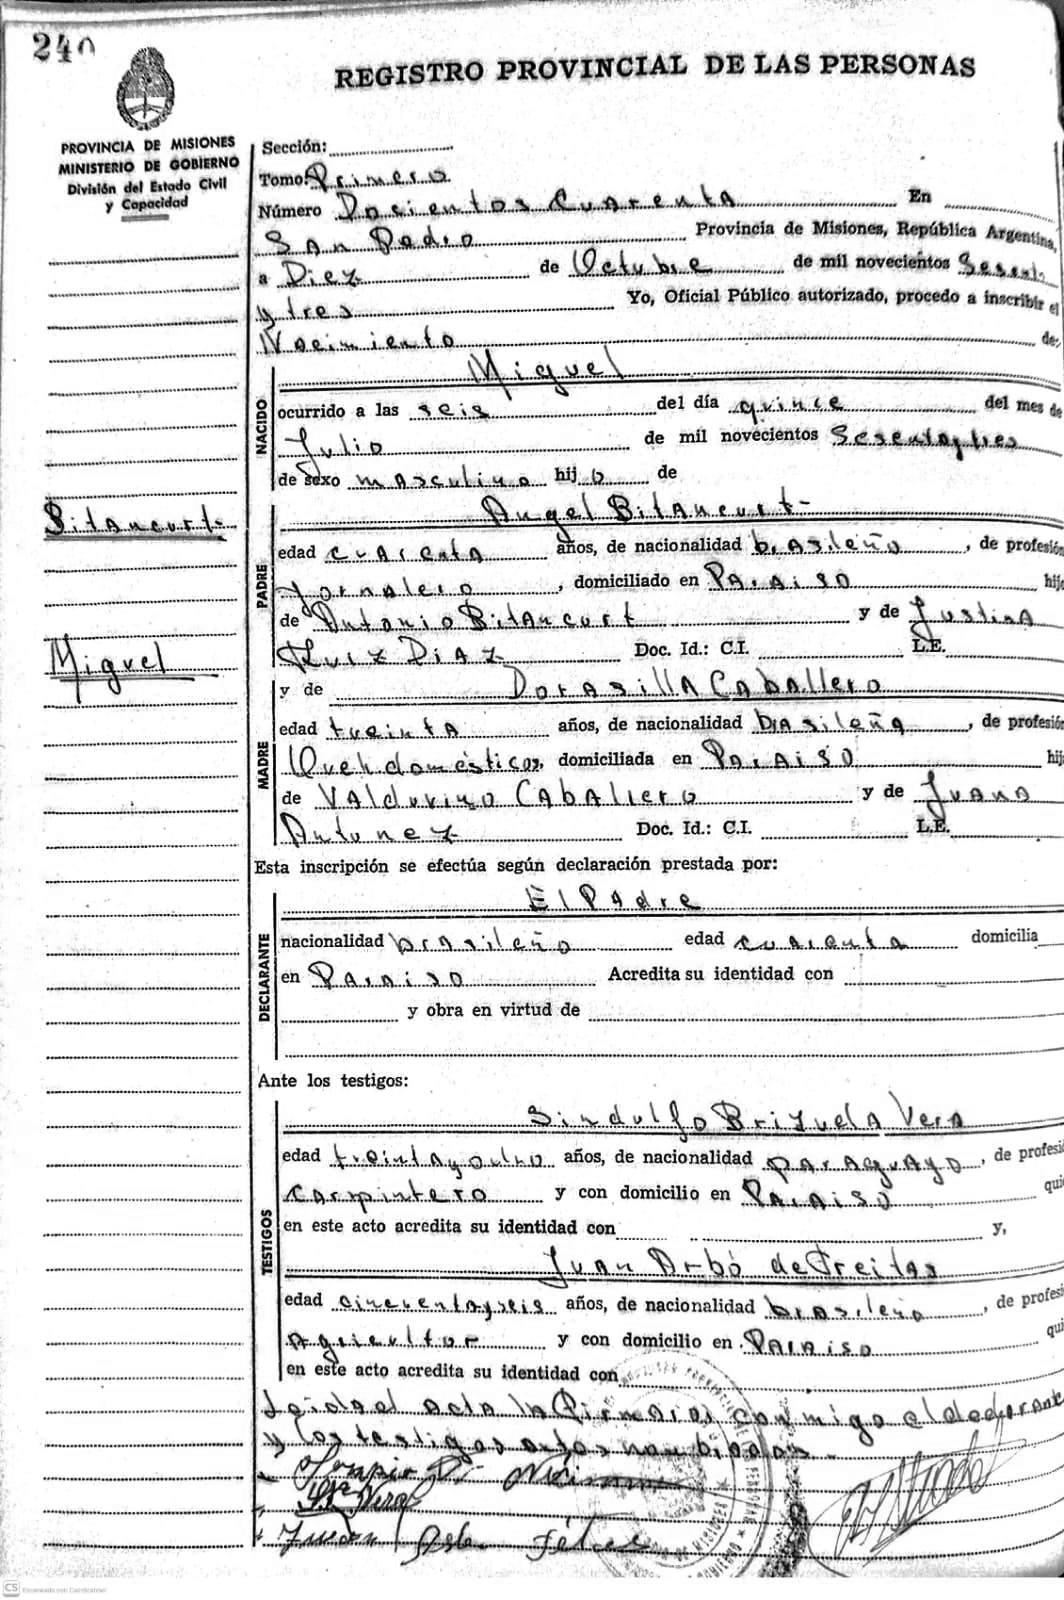 240
REGISTRO PROVINCIAL DE LAS PERSONAS
PROVINCIA DE MISIONES
MINISTERIO DE GOBIERNO
División del Estado Civil
y Capacidad
Sección:
Tomo: Primero
Número Docientos Cuarenta En
San Pedro Provincia de Misiones, República Argentina,
a Diez de Octubre de mil novecientos Sesenta
y tres Yo, Oficial Público autorizado, procedo a inscribir el
Nacimiento de:
NACIDO
Miguel
ocurrido a las seis del día quince del mes de
Julio de mil novecientos Sesentaytres
de sexo masculino hijo de
Bitancurt
Miguel
PADRE
Angel Bitancurt
edad cuarenta años, de nacionalidad brasileño, de profesión
Jornalero, domiciliado en Paraiso hij
de Antonio Bitancurt y de Justina
Ruiz Diaz Doc. Id.: C.I. L.E.
MADRE
y de Dorasilla Caballero
edad treinta años, de nacionalidad brasileña, de profesión
Quehdomésticos, domiciliada en Paraiso hij
de Valduvino Caballero y de Juana
Antunez Doc. Id.: C.I. L.E.
Esta inscripción se efectúa según declaración prestada por:
DECLARANTE
El Padre
nacionalidad brasileño edad cuarenta domicilia
en Paraiso Acredita su identidad con
y obra en virtud de
Ante los testigos:
TESTIGOS
Sindulfo Brizuela Vera
edad treintayocho años, de nacionalidad paraguayo, de profesi
Carpintero y con domicilio en Paraiso qui
en este acto acredita su identidad con y,
Juan Arbó de Freitas
edad cincuentayseis años, de nacionalidad brasileño, de profesi
Agricultor y con domicilio en Paraiso qui
en este acto acredita su identidad con
Leida el acta la Firmaron conmigo el declarante
y los testigos antes nombrados
Vera
Juan
CS Escaneado con CamScanner